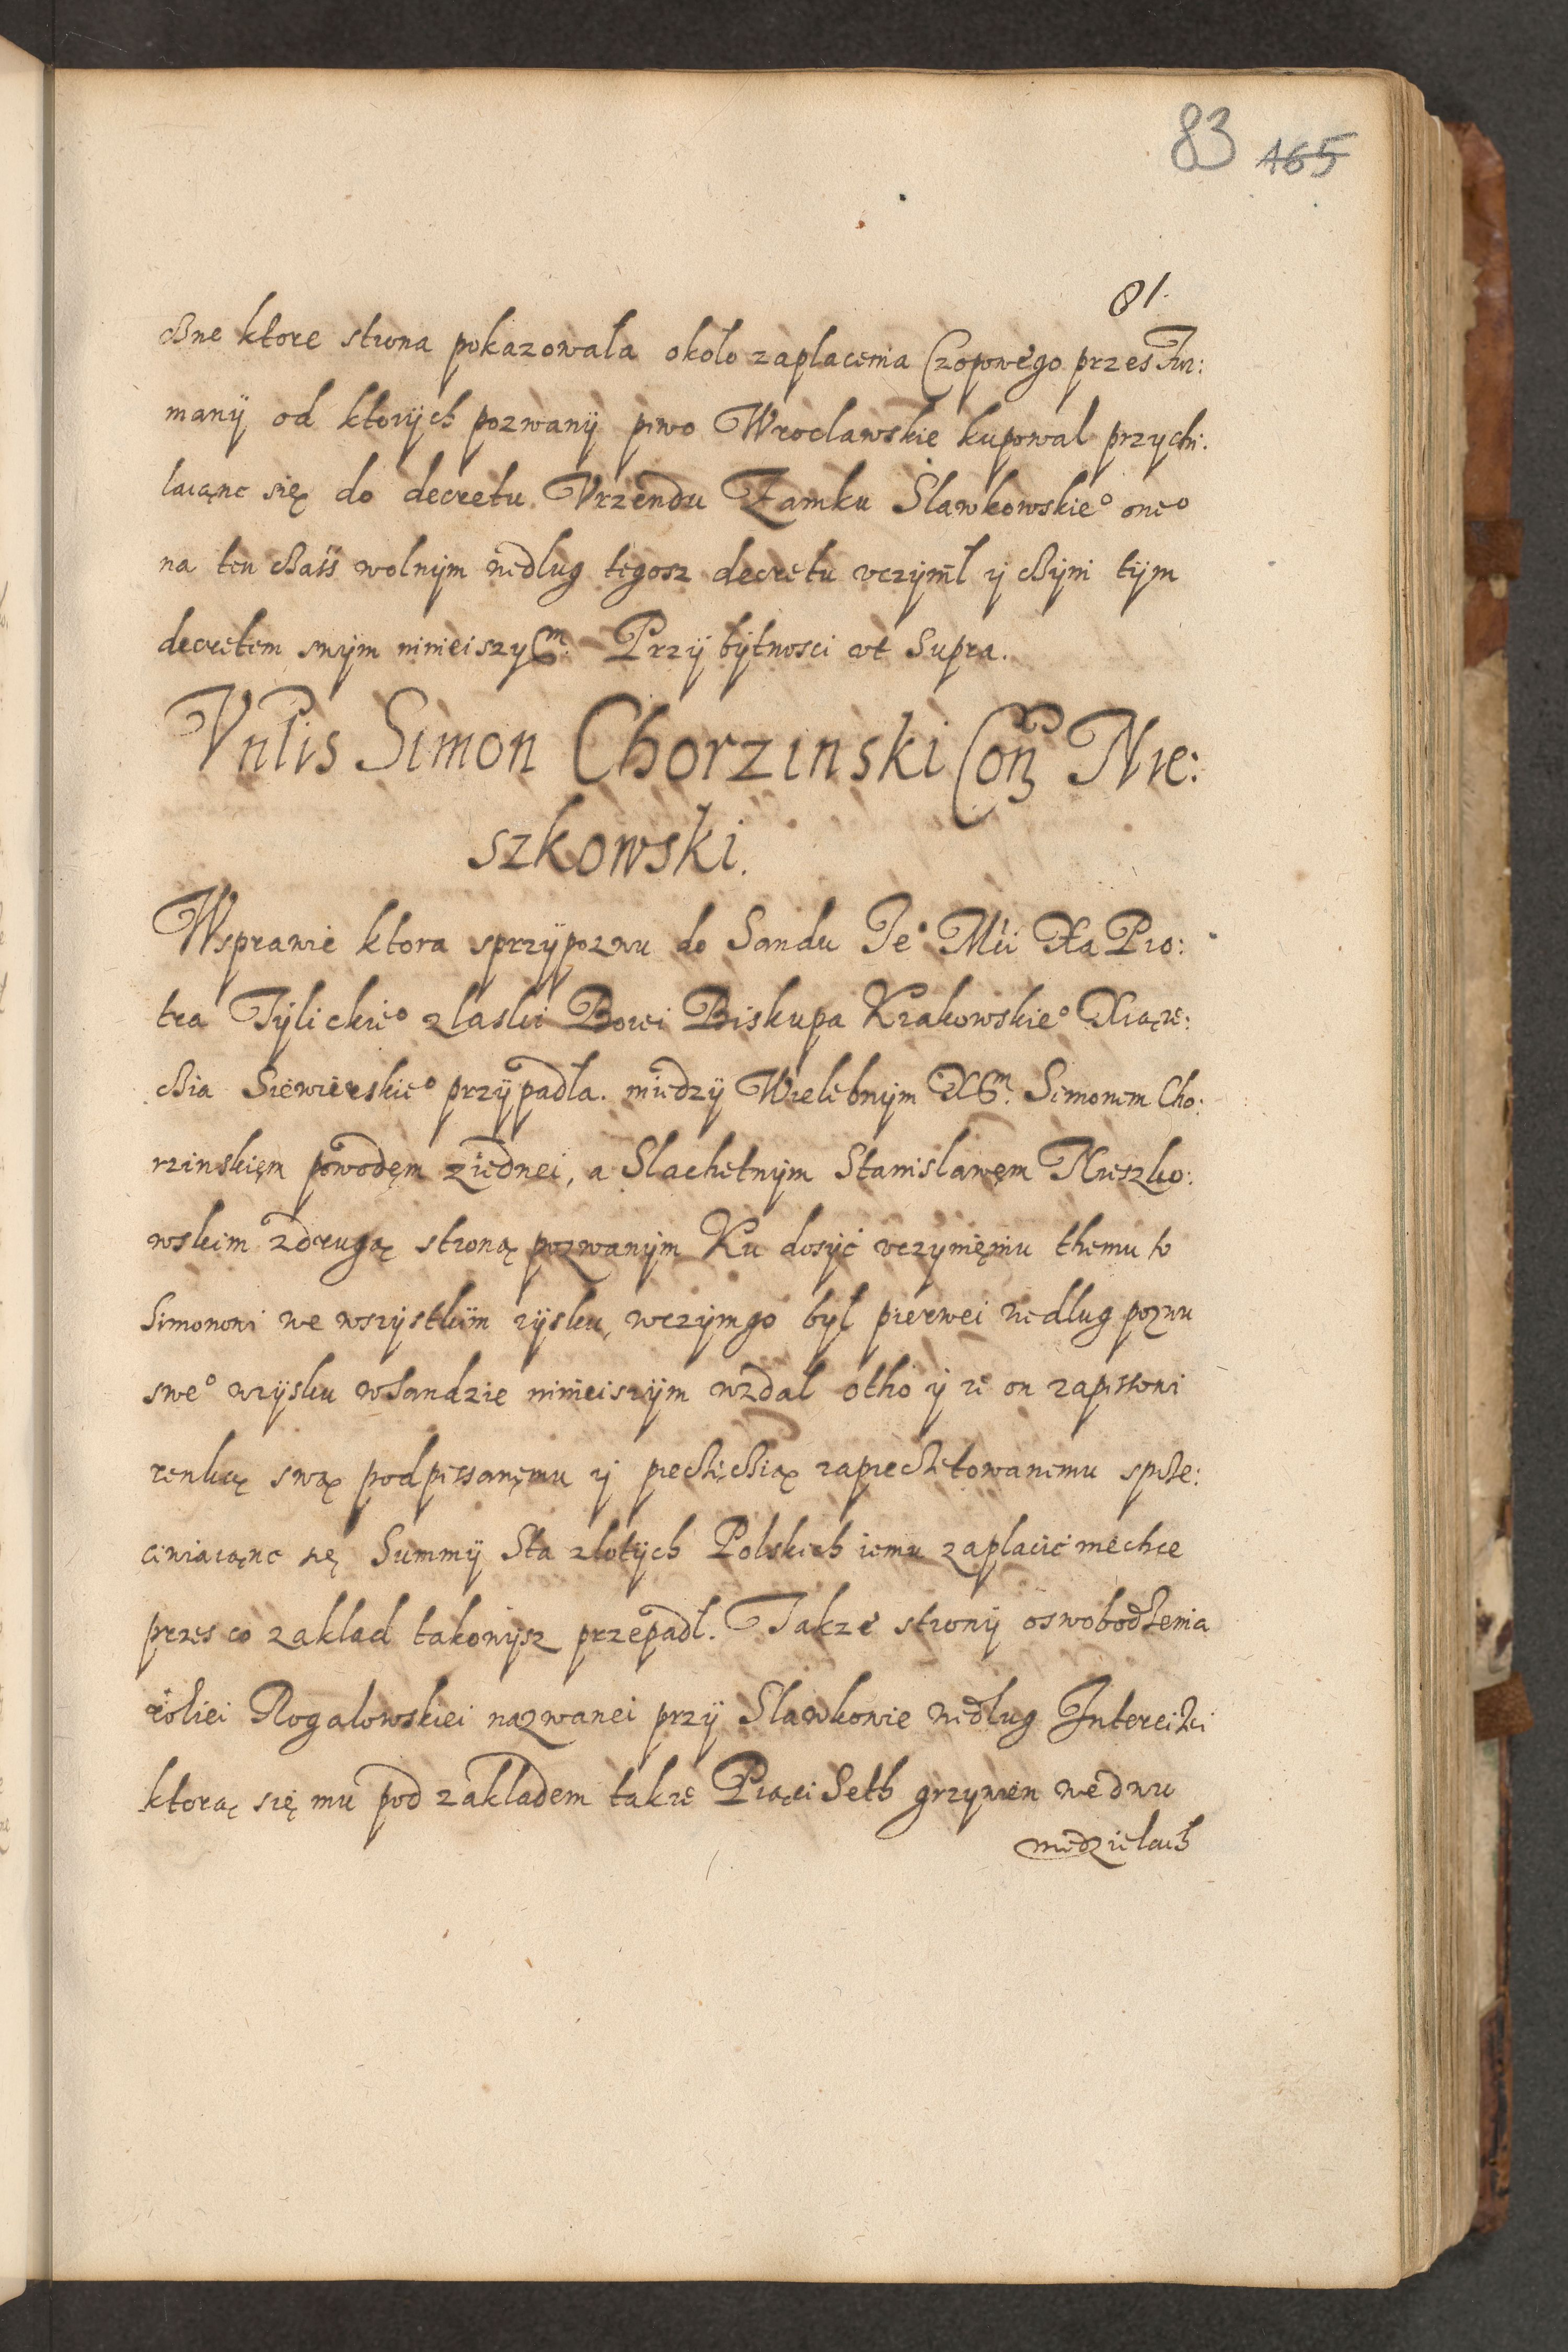 83 165
81.
czne ktore strona pokazowała około zaplacenia Czopowego przes Fur:
manÿ od ktorÿch pozwanÿ piwo Wroclawskie kupowal przychi:
laiąnc się do decretu Vrzendu Zamku Slawkowskieº oneº
na ten czass wolnÿm wedlug tegosz decretu vczÿnil ÿ czÿni tÿm
decretem swÿm ninieiszym. Przÿ bÿtnosci vt Supra.
Vnlis Simon Chorzinski Con Nie:
szkowski.
Wsprawie ktora sprzÿpozwu do Sandu Jeº Mci Xa Pio:
tra Tÿlickieº zlaski Bozei Biskupa Krakowskieº Xiąże:
czia Siewierskieº przÿpadla. miedzÿ Wielebnÿm Xem. Simonem Cho:
rzinskięm powodęm ziednei, a Slachetnÿm Stanislawęm Nieszko:
wskim zdrugą stroną pozwanÿm Ku dosÿć vczynięniu themu to
Simonowi we wszÿstkim zÿsku, wczÿmgo bÿl pierwei wedlug pozwu
sweº wzÿsku wSandzie ninieiszÿm wzdal otho ÿ że on zapissowi
renką swą podpissanęmu ÿ pieczęczią zapieczetowanemu sprze:
ciwiaiąnc się Summÿ Sta zlotÿch Polskich iemu zaplacić niechce
przes co zaklad takowÿsz przepadl. Takze stronÿ oswobodzenia
roliei Rogalowskiei nazwanei przÿ Slawkowie wedlug Intercizi
ktorą się mu pod zakladem takze Piąci Seth grzywien we dwu
niedzielach